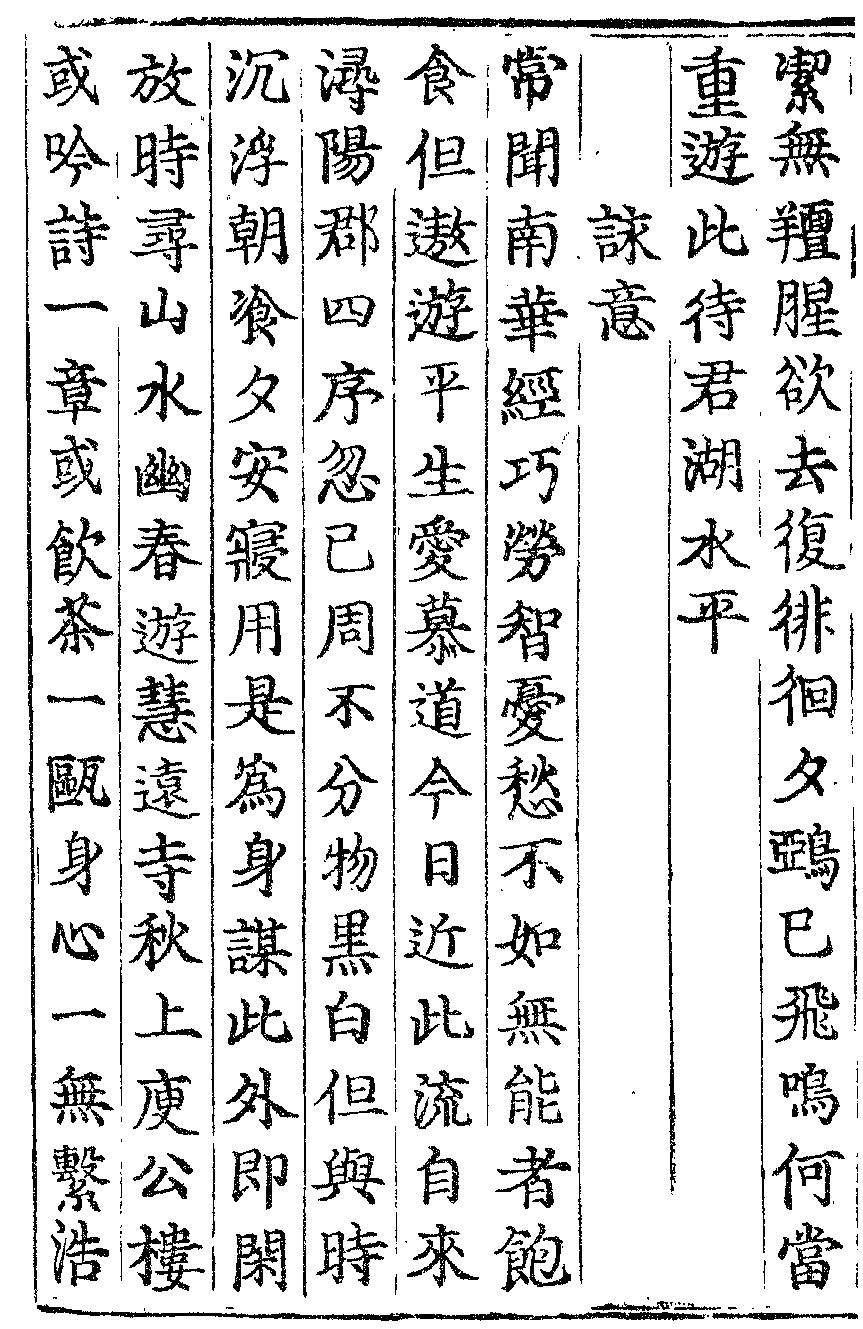 潔無羶腥欲去復徘徊夕鵶已飛鳴何當
重遊此待君湖水平
詠意
常聞南華經巧勞智憂愁不如無能者飽
食但遨遊平生愛慕道今日近此流自來
潯陽郡四序忽已周不分物黑白但與時
沉浮朝飡夕安寢用是爲身謀此外即閑
放時尋山水幽春遊慧遠寺秋上庾公樓
或吟詩一章或飲茶一甌身心一無繫浩